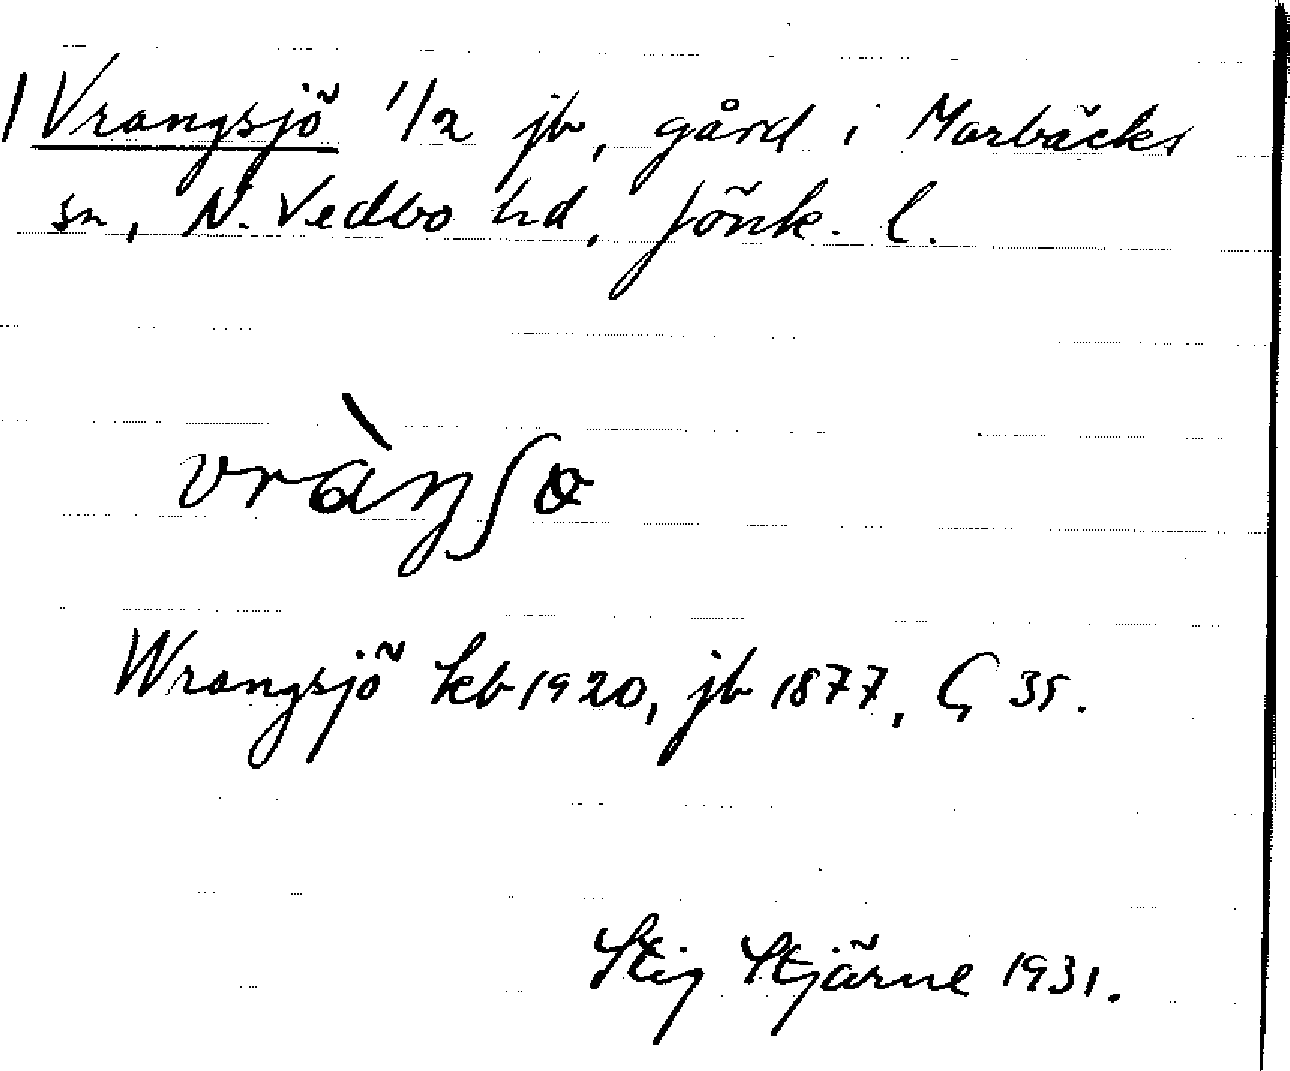 1 Vrangsjö 1/2 jb, gård i Marbäcks
sn, N. Vedbo hd, Jönk. l.
vràŋʃɵ
Wrangsjö kb 1920, jb 1877, G 35.
Stig Stjärne 1931.